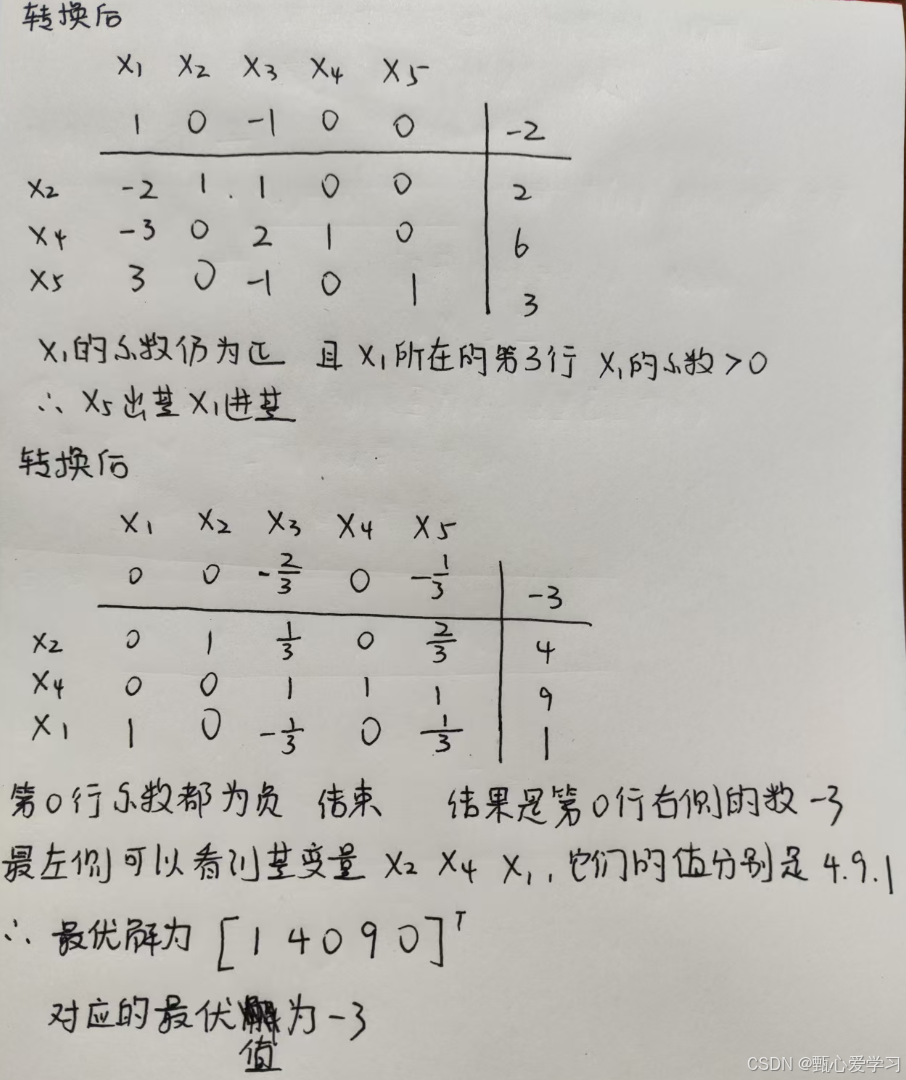 转换后
X₁ X₂ X₃ X₄ X₅
1 0 -1 0 0 -2
X₂ -2 1 1 0 0 2
X₄ -3 0 2 1 0 6
X₅ 3 0 -1 0 1 3
X₁的系数仍为正 且 X₁所在的第3行 X₁的系数>0
∴ X₅出基 X₁进基
转换后
X₁ X₂ X₃ X₄ X₅
0 0 -2/3 0 -1/3 -3
X₂ 0 1 1/3 0 2/3 4
X₄ 0 0 1 1 1 9
X₁ 1 0 -1/3 0 1/3 1
第0行系数都为负 结束 结果是第0行右侧的数-3
最左侧可以看到基变量 X₂ X₄ X₁,它们的值分别是4.9.1
∴ 最优解为 [1 4 0 9 0]ᵀ
对应的最优值为-3
CSDN @甄心爱学习